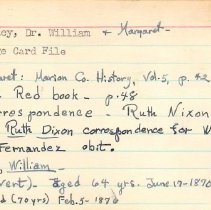 cy, Dr. William & Margaret-
Card File
aret: Marion Co. History, Vol. 5, p. 42
Red book - p. 48
respondence - Ruth Nixon
Ruth Dixon correspondence for W
Fernandez obit.
William -
vert). aged 64 yrs. June 17-1870
d (70 yrs) Feb. 5-1870